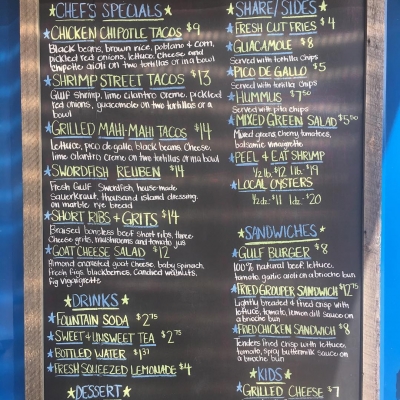 CHEF'S SPECIALS
CHICKEN CHIPOTLE TACOS $9
Black beans, brown rice, poblano & corn,
pickled red onions, lettuce, cheese and
chipotle aioli on two tortillas or in a bowl
SHRIMP STREET TACOS $13
Gulf shrimp, lime cilantro creme, pickled
red onions, guacamole on two tortillas or a
bowl
GRILLED MAHI-MAHI TACOS $14
lettuce, pico de gallo, black beans, cheese,
lime cilantro creme on two tortillas or in a bowl
SWORDFISH REUBEN $14
Fresh Gulf Swordfish, house-made
Sauerkraut, thousand island dressing,
on marble rye bread
SHORT RIBS + GRITS $14
Braised boneless beef short ribs, three
Cheese grits, mushrooms and tomato jus
GOAT CHEESE SALAD $12
Almond encrusted goat cheese, baby spinach,
fresh figs, blackberries, candied walnuts,
fig vinaigrette
DRINKS
FOUNTAIN SODA $2.75
SWEET & UNSWEET TEA $2.75
BOTTLED WATER $1.37
FRESH SQUEEZED LEMONADE $4
DESSERT
SHARE/SIDES
FRESH CUT FRIES $4
GUACAMOLE $8
Served with tortilla chips
PICO DE GALLO $5
Served with tortilla chips
HUMMUS $7.50
Served with pita chips
MIXED GREEN SALAD $5.00
Mixed greens, cherry tomatoes,
balsamic vinaigrette
PEEL & EAT SHRIMP
1/2 lb. $12 1 lb. $19
LOCAL OYSTERS
1/2 dz. $11 1 dz. $20
SANDWICHES
GULF BURGER $8
100% natural beef, lettuce,
tomato, garlic aioli on a brioche bun
FRIED GROUPER SANDWICH $12.75
Lightly breaded & fried crisp with
lettuce, tomato, lemon dill sauce on
a brioche bun
FRIED CHICKEN SANDWICH $8
Tenders fried crisp with lettuce,
tomato, spicy buttermilk sauce on
a brioche bun
KIDS
GRILLED CHEESE $7